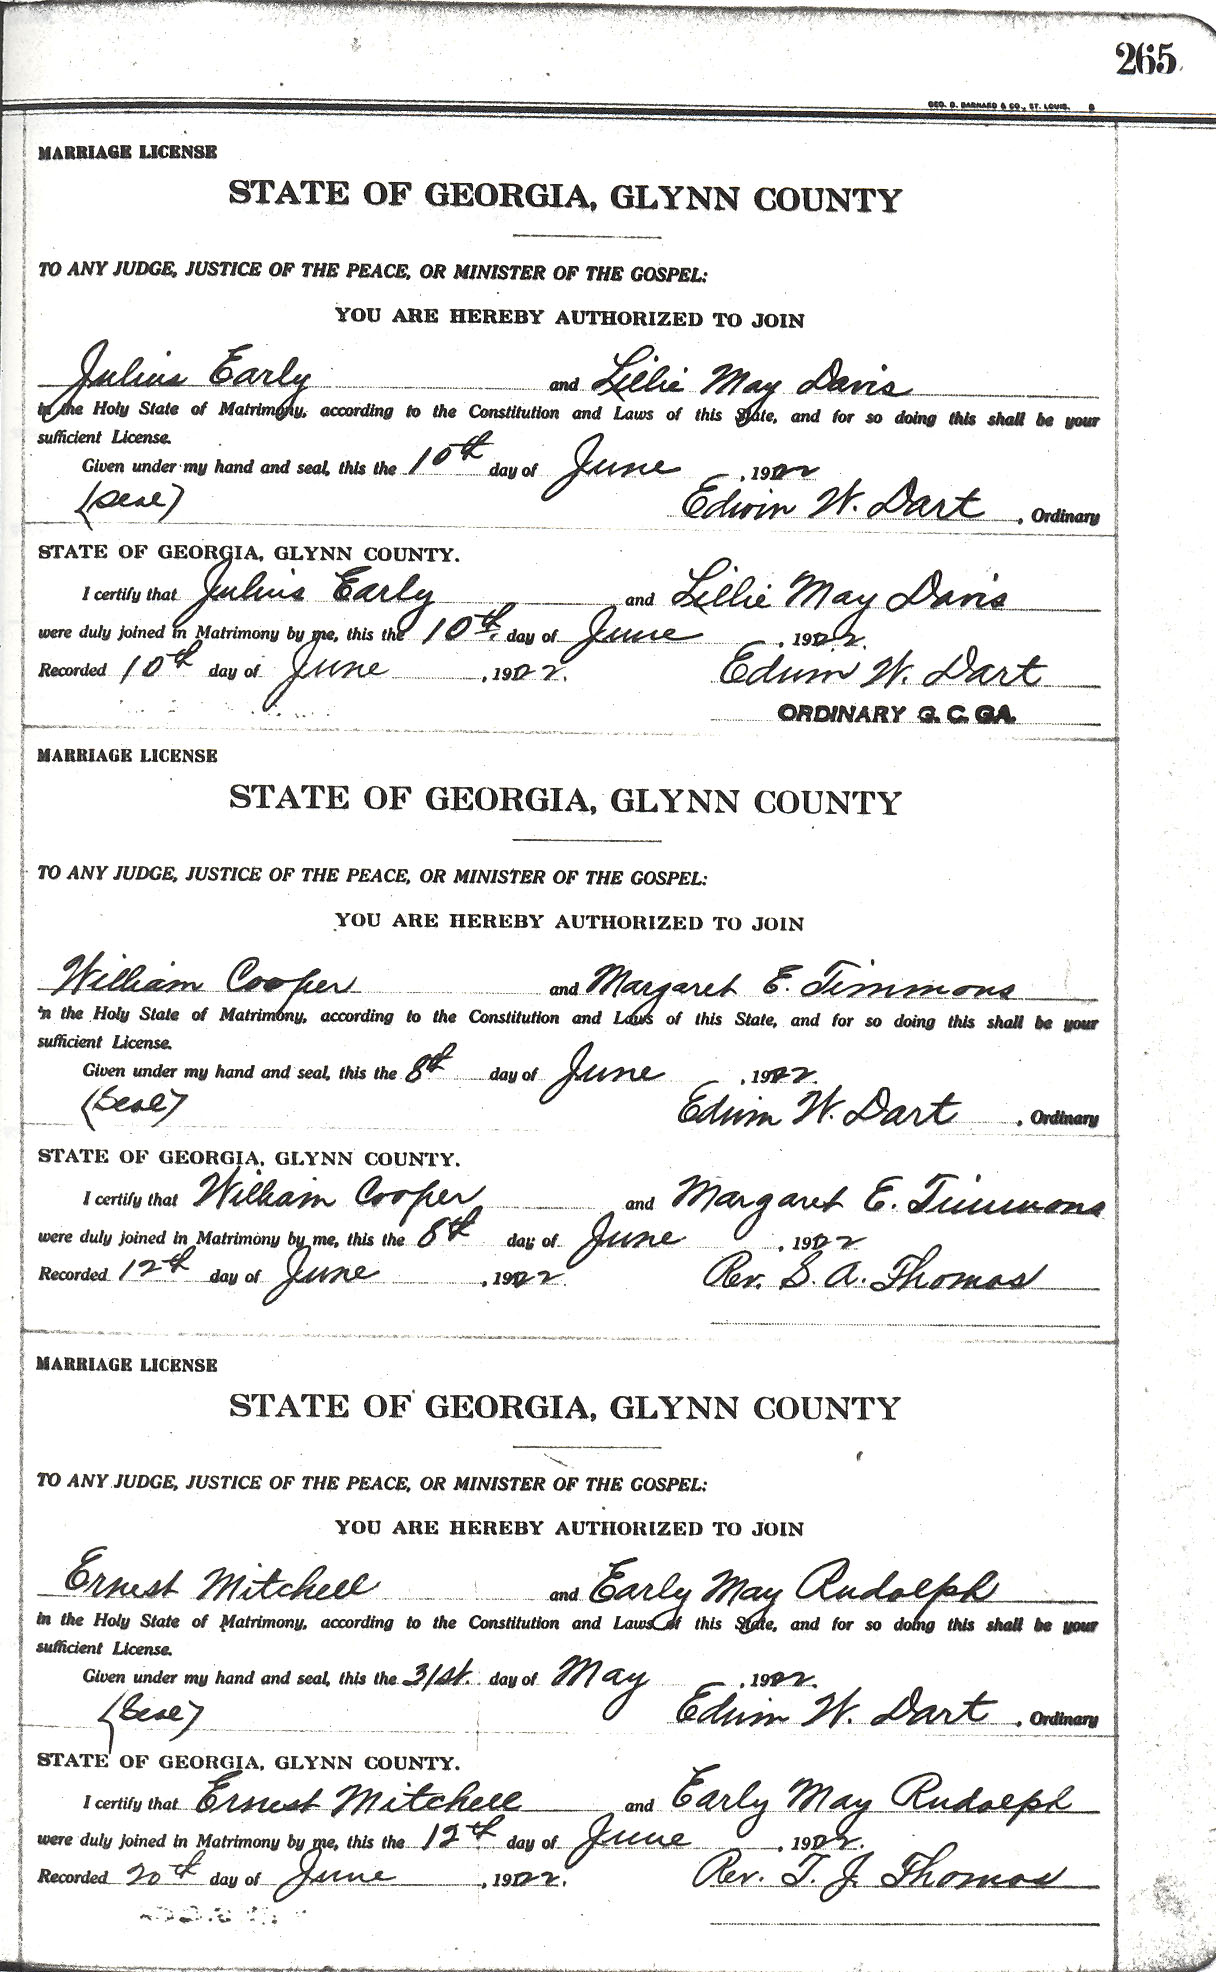 265
GEO. D. BARNARD & CO., ST. LOUIS.
MARRIAGE LICENSE
STATE OF GEORGIA, GLYNN COUNTY
TO ANY JUDGE, JUSTICE OF THE PEACE, OR MINISTER OF THE GOSPEL:
YOU ARE HEREBY AUTHORIZED TO JOIN
Julius Early and Lillie May Davis
in the Holy State of Matrimony, according to the Constitution and Laws of this State, and for so doing this shall be your
sufficient License.
Given under my hand and seal, this the 10th day of June, 1922
(Seal) Edwin W. Dart, Ordinary
STATE OF GEORGIA, GLYNN COUNTY.
I certify that Julius Early and Lillie May Davis
were duly joined in Matrimony by me, this the 10th. day of June, 1922.
Recorded 10th day of June, 1922. Edwin W. Dart
ORDINARY G. C. GA.
MARRIAGE LICENSE
STATE OF GEORGIA, GLYNN COUNTY
TO ANY JUDGE, JUSTICE OF THE PEACE, OR MINISTER OF THE GOSPEL:
YOU ARE HEREBY AUTHORIZED TO JOIN
William Cooper and Margaret E. Timmons
in the Holy State of Matrimony, according to the Constitution and Laws of this State, and for so doing this shall be your
sufficient License.
Given under my hand and seal, this the 8th day of June, 1922.
(Seal) Edwin W. Dart, Ordinary
STATE OF GEORGIA, GLYNN COUNTY.
I certify that William Cooper and Margaret E. Timmons
were duly joined in Matrimony by me, this the 8th day of June, 1922
Recorded 12th day of June, 1922. Rev. S. A. Thomas
MARRIAGE LICENSE
STATE OF GEORGIA, GLYNN COUNTY
TO ANY JUDGE, JUSTICE OF THE PEACE, OR MINISTER OF THE GOSPEL:
YOU ARE HEREBY AUTHORIZED TO JOIN
Ernest Mitchell and Early May Rudolph
in the Holy State of Matrimony, according to the Constitution and Laws of this State, and for so doing this shall be your
sufficient License.
Given under my hand and seal, this the 31st. day of May, 1922.
(Seal) Edwin W. Dart, Ordinary
STATE OF GEORGIA, GLYNN COUNTY.
I certify that Ernest Mitchell and Early May Rudolph
were duly joined in Matrimony by me, this the 12th day of June, 1922.
Recorded 20th day of June, 1922. Rev. T. J. Thomas